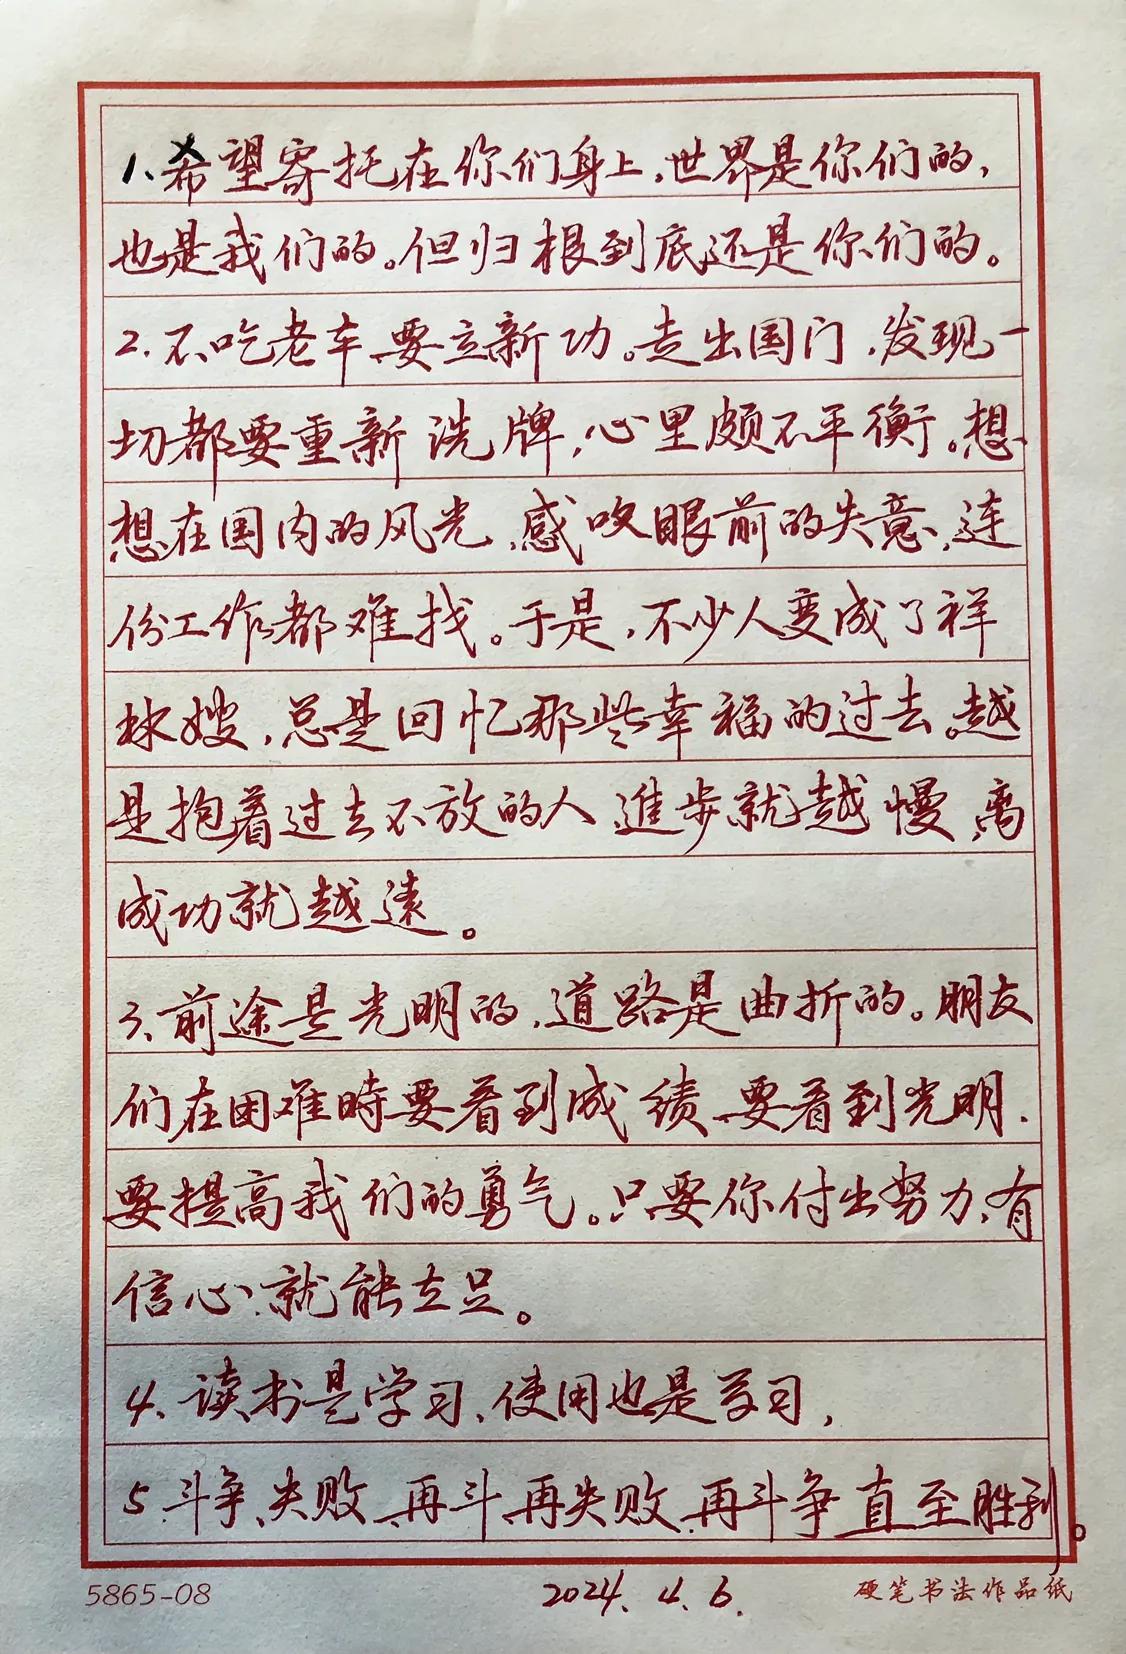 1、希望寄托在你们身上，世界是你们的，
也是我们的。但归根到底还是你们的。
2、不吃老车、要立新功。走出国门，发现一
切都要重新洗牌，心里颇不平衡。想
想在国内的风光，感吹眼前的失意，连
份工作都难找。于是，不少人变成了祥
林嫂，总是回忆那些幸福的过去。越
是抱着过去不放的人，進步就越慢，离
成功就越遠。
3、前途是光明的，道路是曲折的。朋友
们在困难時要看到成绩、要看到光明．
要提高我们的勇气。只要你付出努力，有
信心、就能立足。
4、读书是学习、使用也是学习，
5、斗争、失败、再斗、再失败、再斗争直至胜利。
5865-08
2024.4.6.
硬笔书法作品纸